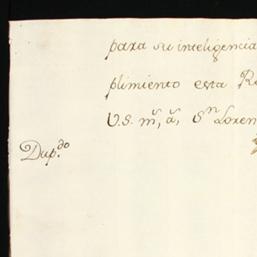 para su inteligencia
plimiento esta R
V.S. m.s a.s Sn Loren
Dup.do